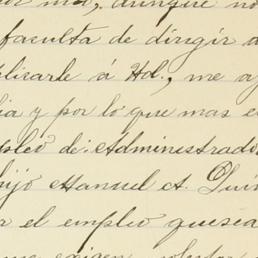 aunque no
faculta de dirigir a
plicarle á Ud., me a
y por lo que mas e
pleo de Administrado
hijo Manuel A. Quin
el empleo que sea
me exigen